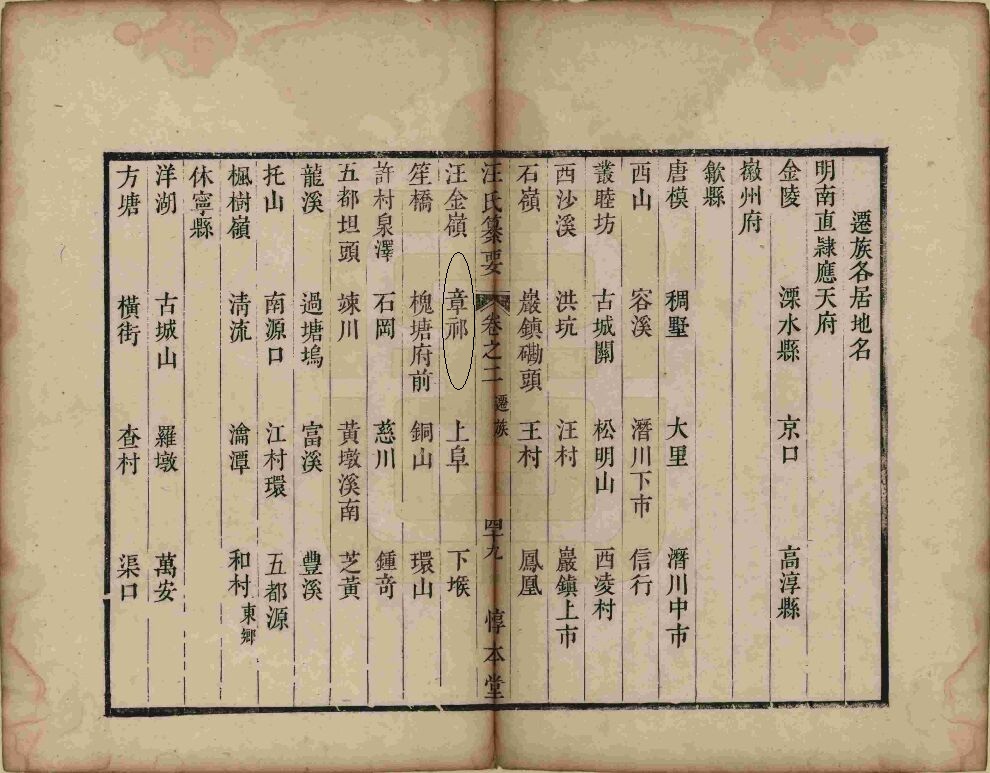 遷族各居地名
明南直隷應天府
金陵 溧水縣 京口 高淳縣
徽州府
歙縣
唐模 稠墅 大里 潛川中市
西山 容溪 潛川下市 信行
叢睦坊 古城關 松明山 西凌村
西沙溪 洪坑 汪村 巖鎮上市
石嶺 巖鎮磡頭 王村 鳳凰
汪氏纂要 卷之二 遷族 四十九 惇本堂
汪金嶺 章祁 上阜 下堠
笙橋 槐塘府前 銅山 環山
許村泉澤 石岡 慈川 鍾竒
五都坦頭 竦川 黃墩溪南 芝黃
龍溪 過塘塢 富溪 豐溪
托山 南源口 江村環 五都源
楓樹嶺 清流 瀹潭 和村東鄉
休寧縣
洋湖 古城山 羅墩 萬安
方塘 橫街 杳村 渠口